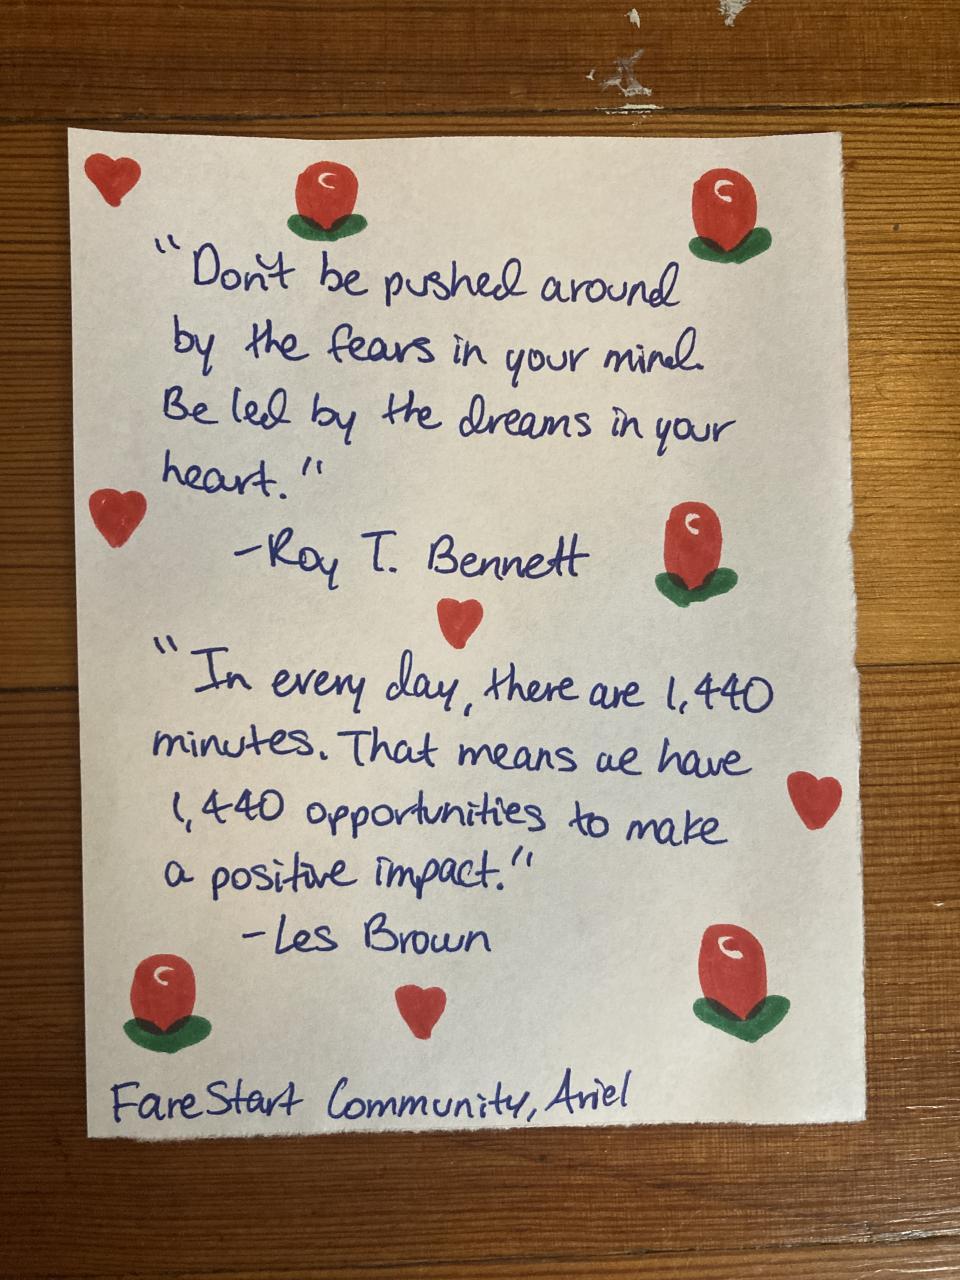 "Don't be pushed around
by the fears in your mind.
Be led by the dreams in your
heart."
-Roy T. Bennett
"In every day, there are 1,440
minutes. That means we have
1,440 opportunities to make
a positive impact."
-Les Brown
FareStart Community, Ariel